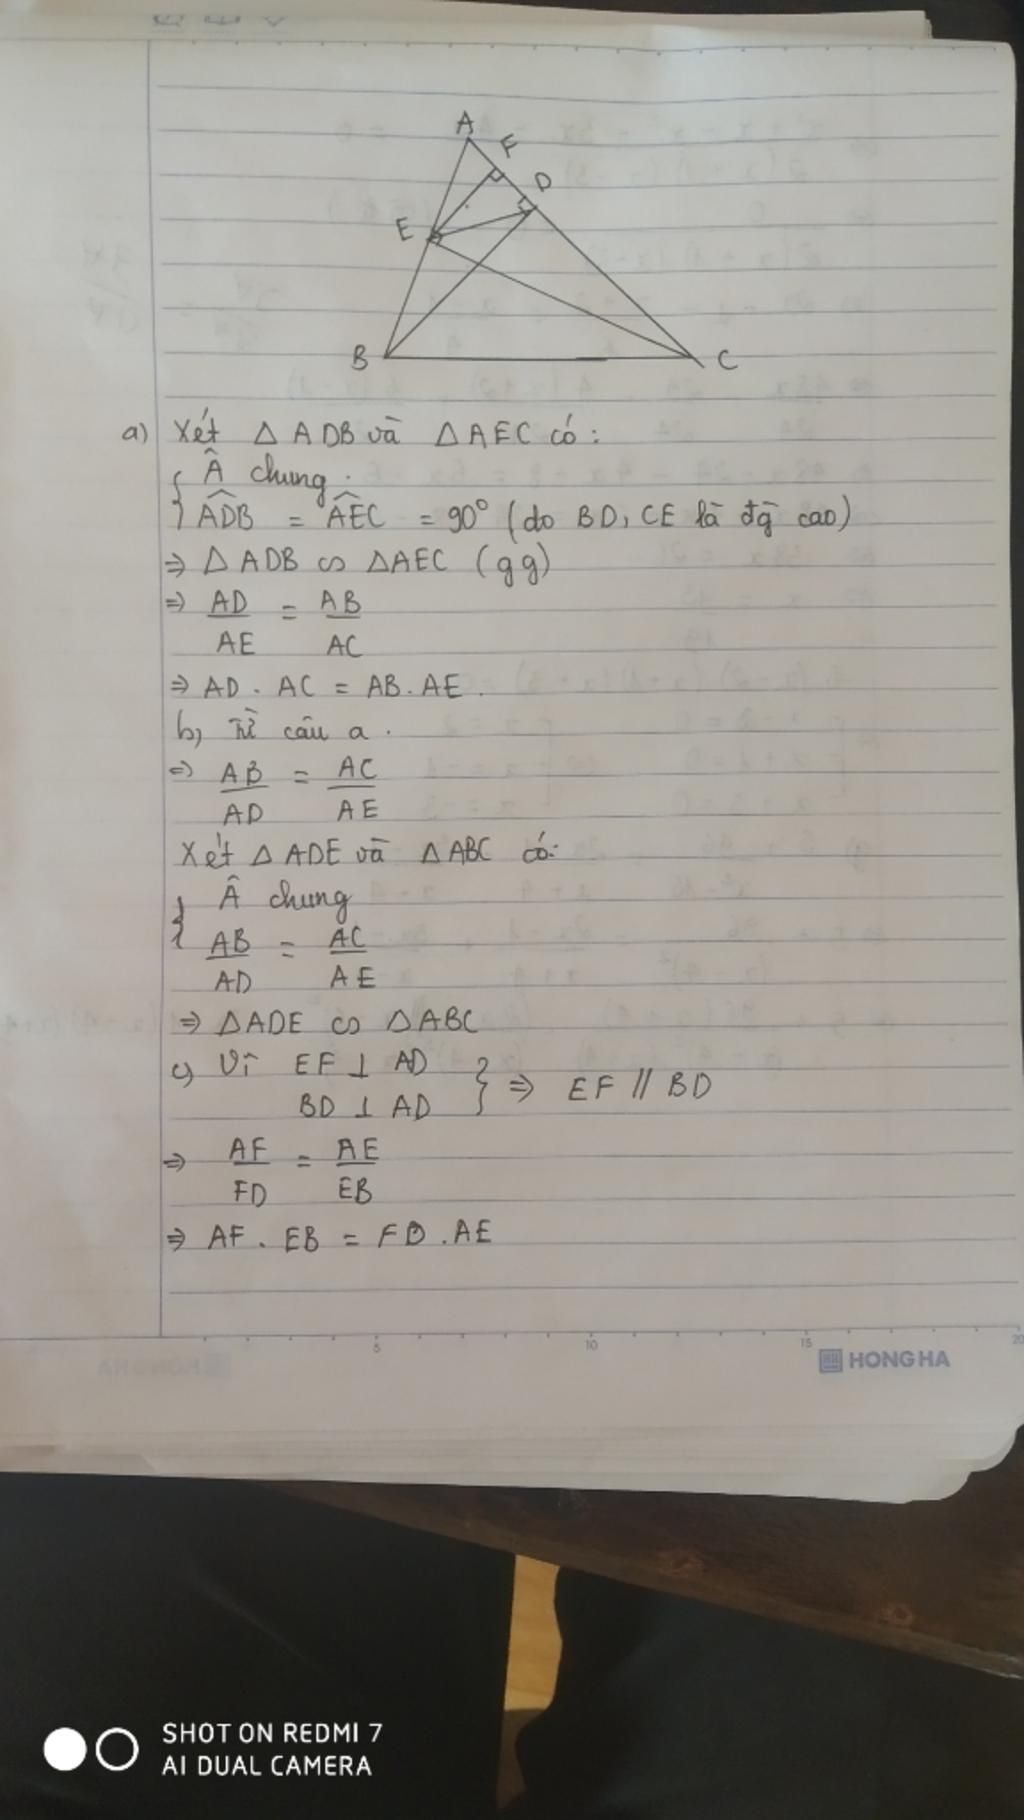 A
F
D
E
B
C
a) Xét △ ADB và △ AEC có:
{ Â chung.
ADB = AEC = 90° (do BD, CE là đg cao)
⇒ △ ADB ∽ △AEC (gg)
⇒ AD/AE = AB/AC
⇒ AD . AC = AB . AE.
b, Từ câu a.
⇒ AB/AD = AC/AE
Xét △ ADE và △ABC có:
{ Â chung
AB/AD = AC/AE
⇒ △ADE ∽ △ABC
c) Vì EF ⊥ AD
BD ⊥ AD } ⇒ EF // BD
⇒ AF/FD = AE/EB
⇒ AF . EB = FD . AE
5 10 15 20
HONG HA
SHOT ON REDMI 7
AI DUAL CAMERA